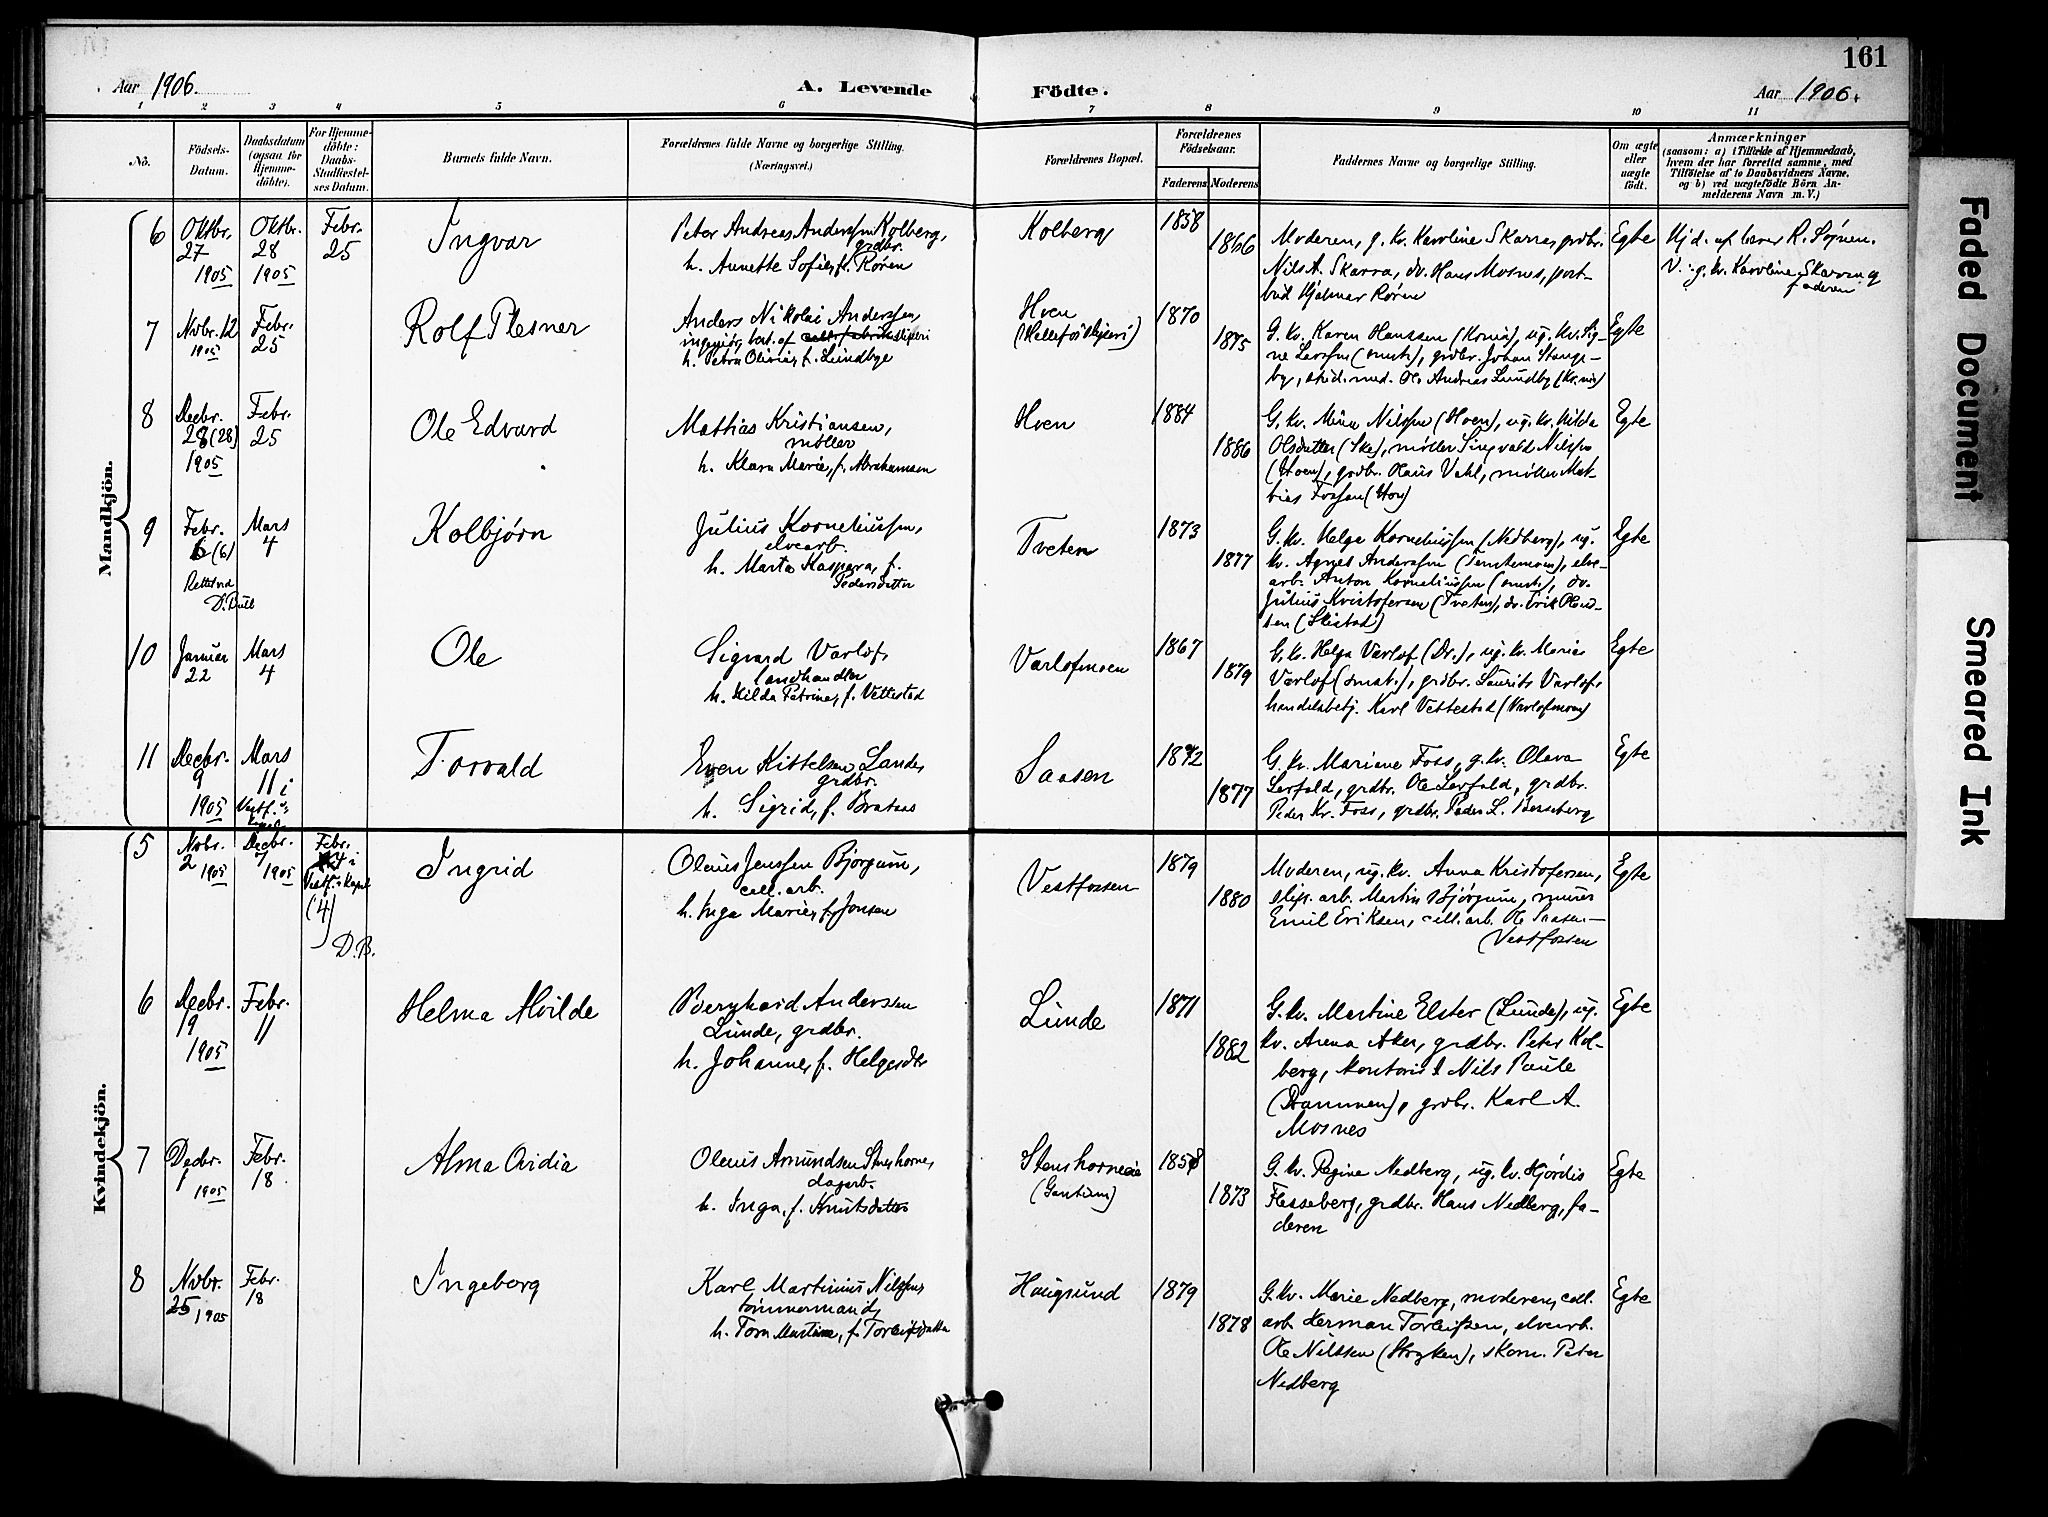 161
Aar 1906.
A. Levende
Födte.
Aar 1906.
1 2 3 4 5 6 7 8 9 10 11
No.
Födsels-
Datum.
Daabsdatum
(ogsaa for
Hjemme-
döbte).
For Hjemme-
döbte:
Daabs-
Stadfæstel-
ses Datum.
Barnets fulde Navn.
Forældrenes fulde Navne og borgerlige Stilling.
(Næringsvei.)
Forældrenes Bopæl.
Forældrenes
Födselsaar.
Faderens
Moderens
Faddernes Navne og borgerlige Stilling.
Om ægte
eller
uægte
födt.
Anmærkninger
(saasom: a) i Tilfælde af Hjemmedaab,
hvem der har forrettet samme, med
Tilföielse af to Daabsvidners Navne,
og b) ved uægtefödte Börn An-
melderens Navn m. V.)
Mandkjön.
6
Oktbr.
27
1905
Oktbr.
28
1905
Febr.
25
Ingvar
Peter Andreas Anderssen Kolberg,
grdbr.
h. Annette Sofie, f. Røren
Kolberg
1858
1866
Moderen, g. kv. Karoline Skarra, grdbr.
Nils A. Skarra, dv. Hans Mosnes, post-
bud Hjalmar Røren
Egte
Hjd. af lærer R. Søjnen.
V.: g. kv. Karoline Skarra og
faderen
7
Novbr. 12
1905
Febr.
25
Rolf Plesner
Anders Nikolai Anderssen,
ingeniør, best. af
h. Petra Olivia, f. Lundbye
Hven
(Hellefossliperi)
1870
1875
G. kv. Karen Hanssen (Krnia), ug. kv. Sig-
ne Larssen (smst.), grdbr. Johan Stange-
by, stud. med. Ole Andreas Lundby (Kr.nia)
Egte
8
Decbr.
28 (28)
1905
Febr.
25
Ole Edvard
Mathias Kristiansen,
møller
h. Klara Marie, f. Abrahamsen
Hven
1884
1886
G. kv. Mina Nilssen (Hoen), ug. kv. Hilda
Olsdatter (Ske), møller Singvald Nilssen
(Hoen), grdbr. Hans Vahl, møller Mat-
hias Fossen (Hoen)
Egte
9
Febr.
6 (6)
Rettet ved
D. Bull
Mars
4
Kolbjørn
Julius Korneliussen,
elvearb.
h. Marta Kaspara, f.
Pedersdatter
Tveten
1873
1877
G. kv. Helga Korneliussen (Nedberg), ug.
kv. Agnes Anderssen (Temtemoen), elve-
arb. Anton Korneliussen (smst.), dv.
Julius Kristofersen (Tveten), dv. Erik Olaus-
sen (Skistad)
Egte
10
Januar
22
Mars
4
Ole
Sigvard Varlof,
landhandler
h. Hilda Petrine, f. Vettestad
Varlofmoen
1867
1879
G. kv. Helga Varlof (Dr.), ug. kv. Marie
Varlof (smst.), grdbr. Laurits Varlof,
handelsbetj. Karl Vettestad (Varlofmoen)
Egte
11
Decbr.
9
1905
Mars
11 i
Vestf.
Torvald
Even Kittelsen Lande,
grdbr.
h. Sigrid, f. Brataas
Saasen
1872
1877
G. kv. Mariane Foss, g. kv. Olava
Lerfald, grdbr. Ole Lerfald, grdbr.
Peder Kr. Foss, grdbr. Peder L. Besseberg
Egte
Kvindekjön.
5
Novbr.
2
1905
Decbr.
7
1905
Febr.
4 i
Vestf. Kapel
(4)
D. B.
Ingrid
Oleus Jenssen Bjørgum,
cell. arb.
h. Inga Marie, f. Jonsen
Vestfossen
1879
1880
Moderen, ug. kv. Anna Kristofersen,
slip. arb. Martin Bjørgum, murer
Emil Eriksen, cell. arb. Ole Saasen —
(Vestfossen
Egte
6
Decbr.
19
1905
Febr.
11
Helma Alvilde
Bernhard Anderssen
Lunde, grdbr.
h. Johanne, f. Helgesdtr
Lunde
1871
1882
G. kv. Martine Elster (Lunde), ug.
kv. Anna Aker, grdbr. Peter Kol-
berg, kontorist Nils Paule
(Drammen), grdbr. Karl A.
Mosnes
Egte
7
Decbr.
1
1905
Febr.
18
Alma Ovidia
Oleus Amundsen Stenshorne,
dagarb.
h. Inga, f. Knutsdatter
Stenshorneie
1858
1873
G. kv. Regine Nedberg, ug. kv. Hjørdis
Flesseberg, grdbr. Hans Nedberg, fa-
deren
Egte
8
Novbr.
25
1905
Febr.
18
Ingeborg
Karl Martinius Nilssen,
tømmermand,
h. Torn Martine, f. Torleifsdatter
Haugsund
1879
1878
G. kv. Marie Nedberg, moderen, cell.
arb. Herman Torleifsen, elvearb.
Ole Nilssen (Stryken), skom. Peter
Nedberg
Egte
Faded Document
Smeared Ink